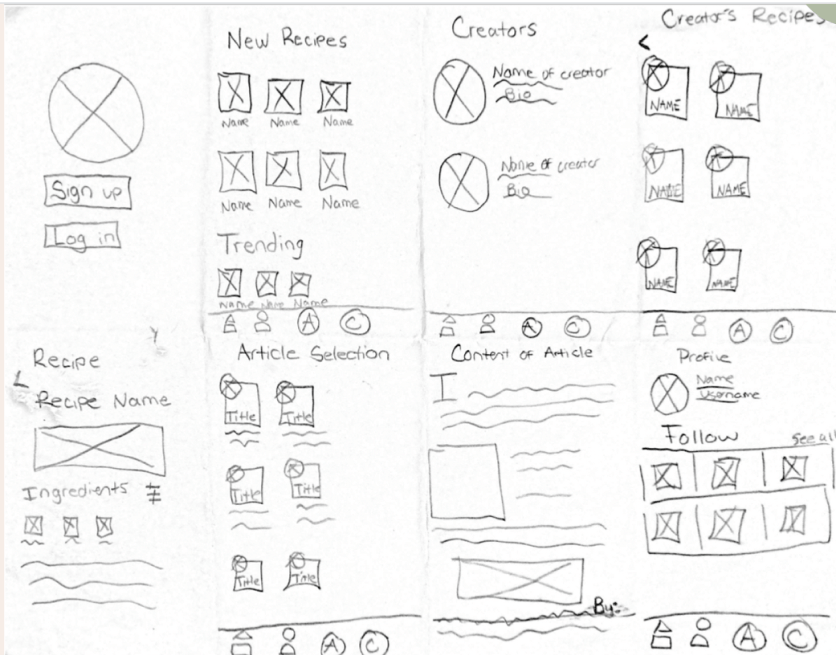 Sign up
Log in
New Recipes
Name Name Name
Name Name Name
Trending
Name Name Name
A C
Creators
Name of creator
Bio
Name of creator
Bio
A C
Creator's Recipes
<
NAME NAME
NAME NAME
NAME NAME
A C
Recipe
Recipe Name
Ingredients
Article Selection
Title Title
Title Title
Title Title
A C
Content of Article
I
By:
Profile
Name
Username
Follow See all
A C